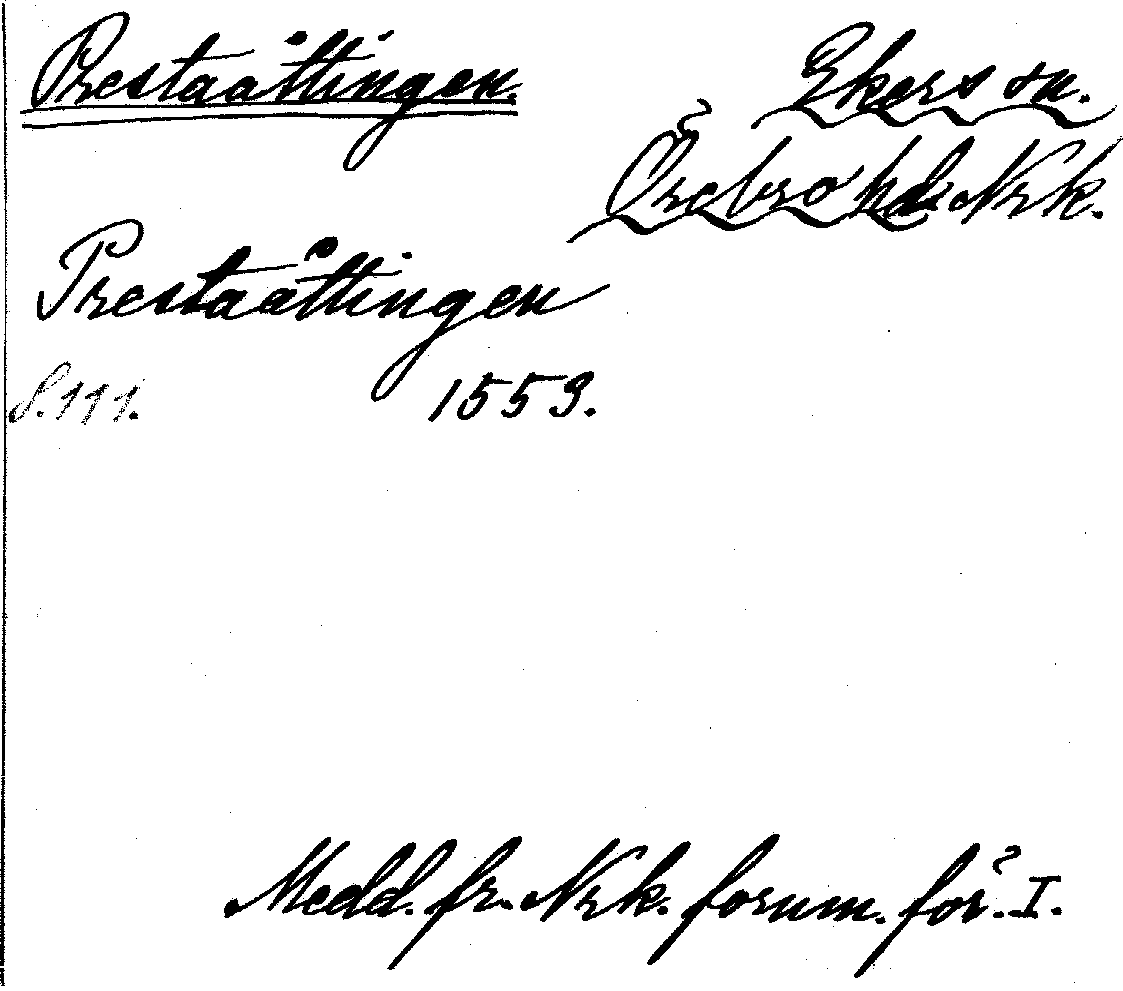 Prestaåttingen.
Ekers sn.
Örebro hd. Nrk.
Prestaåttingen
S. 111. 1559.
Medd. fr. Nrk. fornm. för. I.